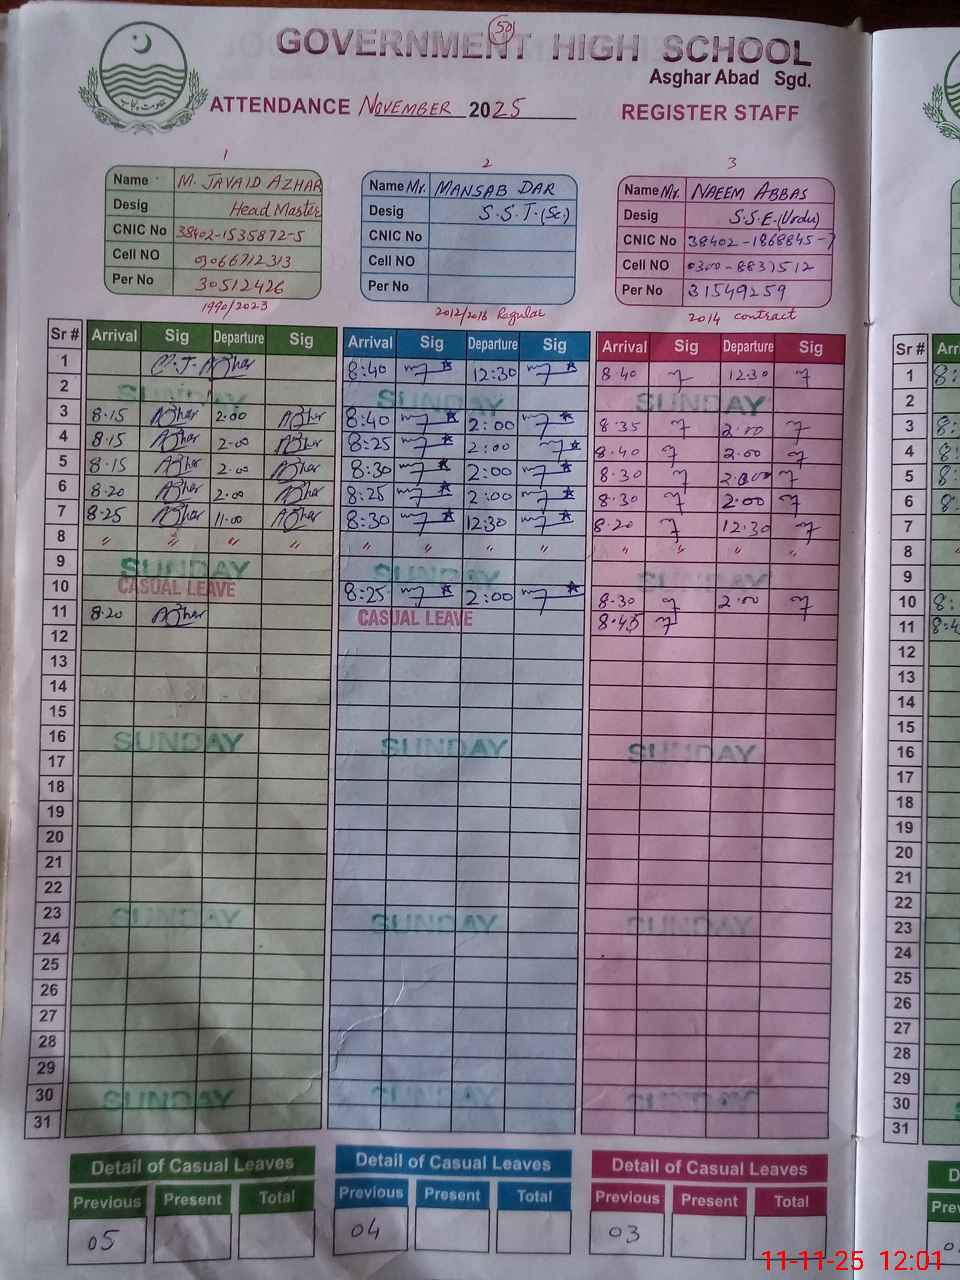 50
GOVERNMENT HIGH SCHOOL
Asghar Abad Sgd.
ATTENDANCE NOVEMBER 2025 REGISTER STAFF
1 2 3
Name M. JAVAID AZHAR
Desig Head Master
CNIC No 38402-1535872-5
Cell NO 03066712313
Per No 30512426
1990/2023
Name Mr. MANSAB DAR
Desig S.S.T.(Sc.)
CNIC No
Cell NO
Per No
2012/2016 Regular
Name Mr. NAEEM ABBAS
Desig S.S.E.(Urdu)
CNIC No 38402-1868845-7
Cell NO 0300-8837512
Per No 31549259
2014 contract
Sr # Arrival Sig Departure Sig Arrival Sig Departure Sig Arrival Sig Departure Sig Sr #
1 Azhar 8:40 12:30 8.40 12.30 1
2 SUNDAY SUNDAY SUNDAY 2
3 8.15 Azhar 2.00 Azhar 8:40 2:00 8.35 2.00 3
4 8.15 Azhar 2.00 Azhar 8:25 2:00 8.40 2.00 4
5 8.15 Azhar 2.00 Azhar 8:30 2:00 8.30 2.00 5
6 8.20 Azhar 2.00 Azhar 8:25 2:00 8.30 2.00 6
7 8.25 Azhar 11.00 Azhar 8:30 12:30 8.20 12.30 7
8 " " " " " " " " " " " " 8
9 SUNDAY SUNDAY SUNDAY 9
10 CASUAL LEAVE 8:25 2:00 8.30 2.00 10
11 8.20 Azhar CASUAL LEAVE 8.45 11
12 12
13 13
14 14
15 15
16 SUNDAY SUNDAY SUNDAY 16
17 17
18 18
19 19
20 20
21 21
22 22
23 SUNDAY SUNDAY SUNDAY 23
24 24
25 25
26 26
27 27
28 28
29 29
30 SUNDAY SUNDAY SUNDAY 30
31 31
Detail of Casual Leaves Detail of Casual Leaves Detail of Casual Leaves
Previous Present Total Previous Present Total Previous Present Total
05 04 03
11-11-25 12:01